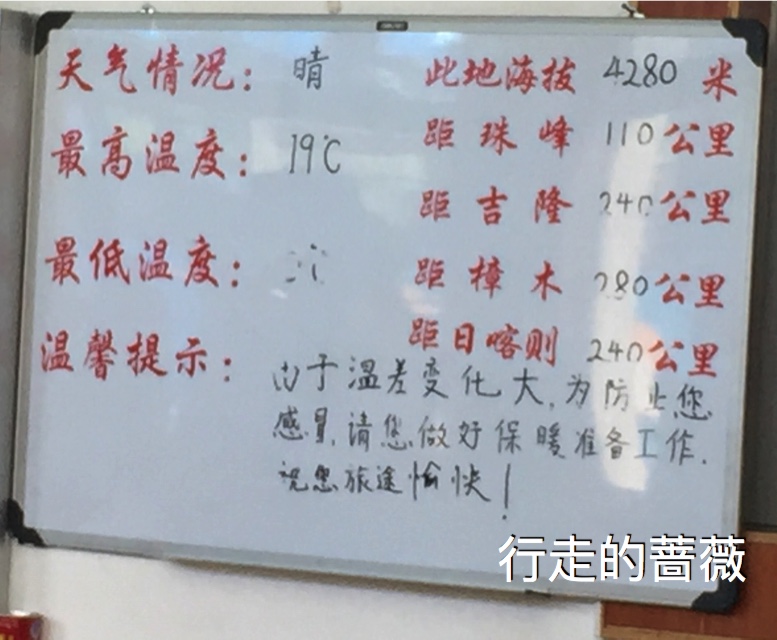 天气情况：晴
此地海拔 4280 米
最高温度：19℃
距珠峰 110公里
距吉隆 240公里
最低温度：
距樟木 280公里
距日喀则 240公里
温馨提示：
由于温差变化大,为防止您
感冒,请您做好保暖准备工作.
祝您旅途愉快!
行走的蔷薇